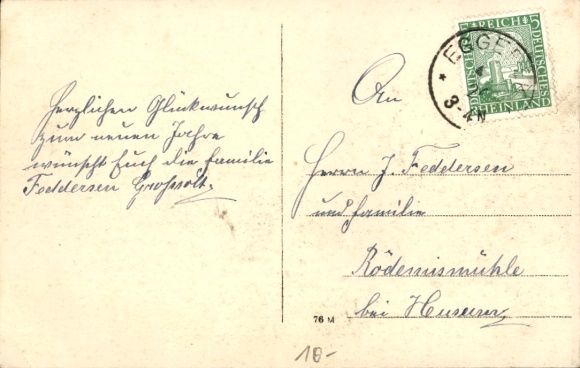 Herzlichen Glückwunsch
zum neuen Jahre
wünscht Euch die Familie
Feddersen Großsolt.
An
Herrn J. Feddersen
und Familie
Rödemismühle
bei Husum
DEUTSCHES REICH 5
DEUTSCHES
RHEINLAND
EGGE
3-4N
76 M
10-